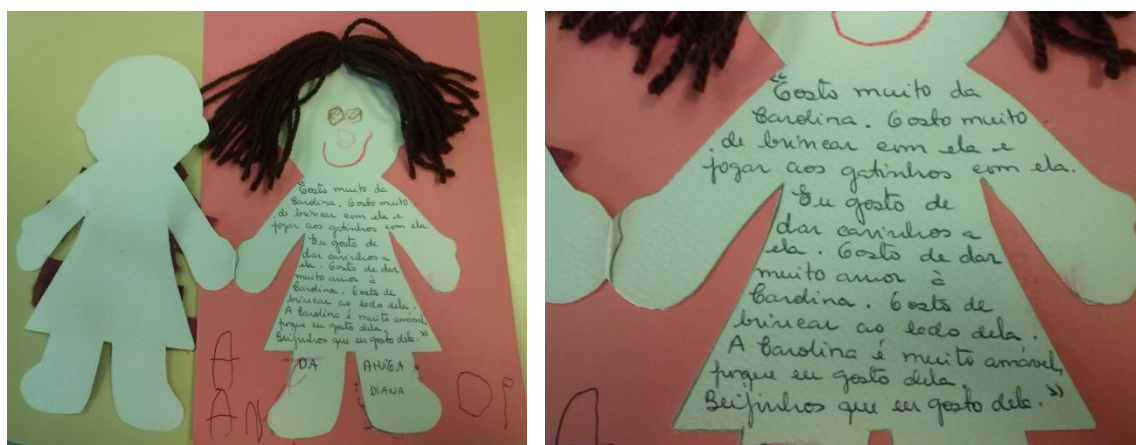 "Gosto muito da
Carolina. Gosto muito
de brincar com ela e
jogar aos gatinhos com ela.
Eu gosto de
dar carinhos a
ela. Gosto de dar
muito amor à
Carolina. Gosto de
brincar ao lado dela.
A Carolina é muito amável,
porque eu gosto dela.
Beijinhos que eu gosto dela."
DA AMIGA
DIANA
A
AN
DI
"Gosto muito da
Carolina. Gosto muito
de brincar com ela e
jogar aos gatinhos com ela.
Eu gosto de
dar carinhos a
ela. Gosto de dar
muito amor à
Carolina. Gosto de
brincar ao lado dela.
A Carolina é muito amável,
porque eu gosto dela.
Beijinhos que eu gosto dela."